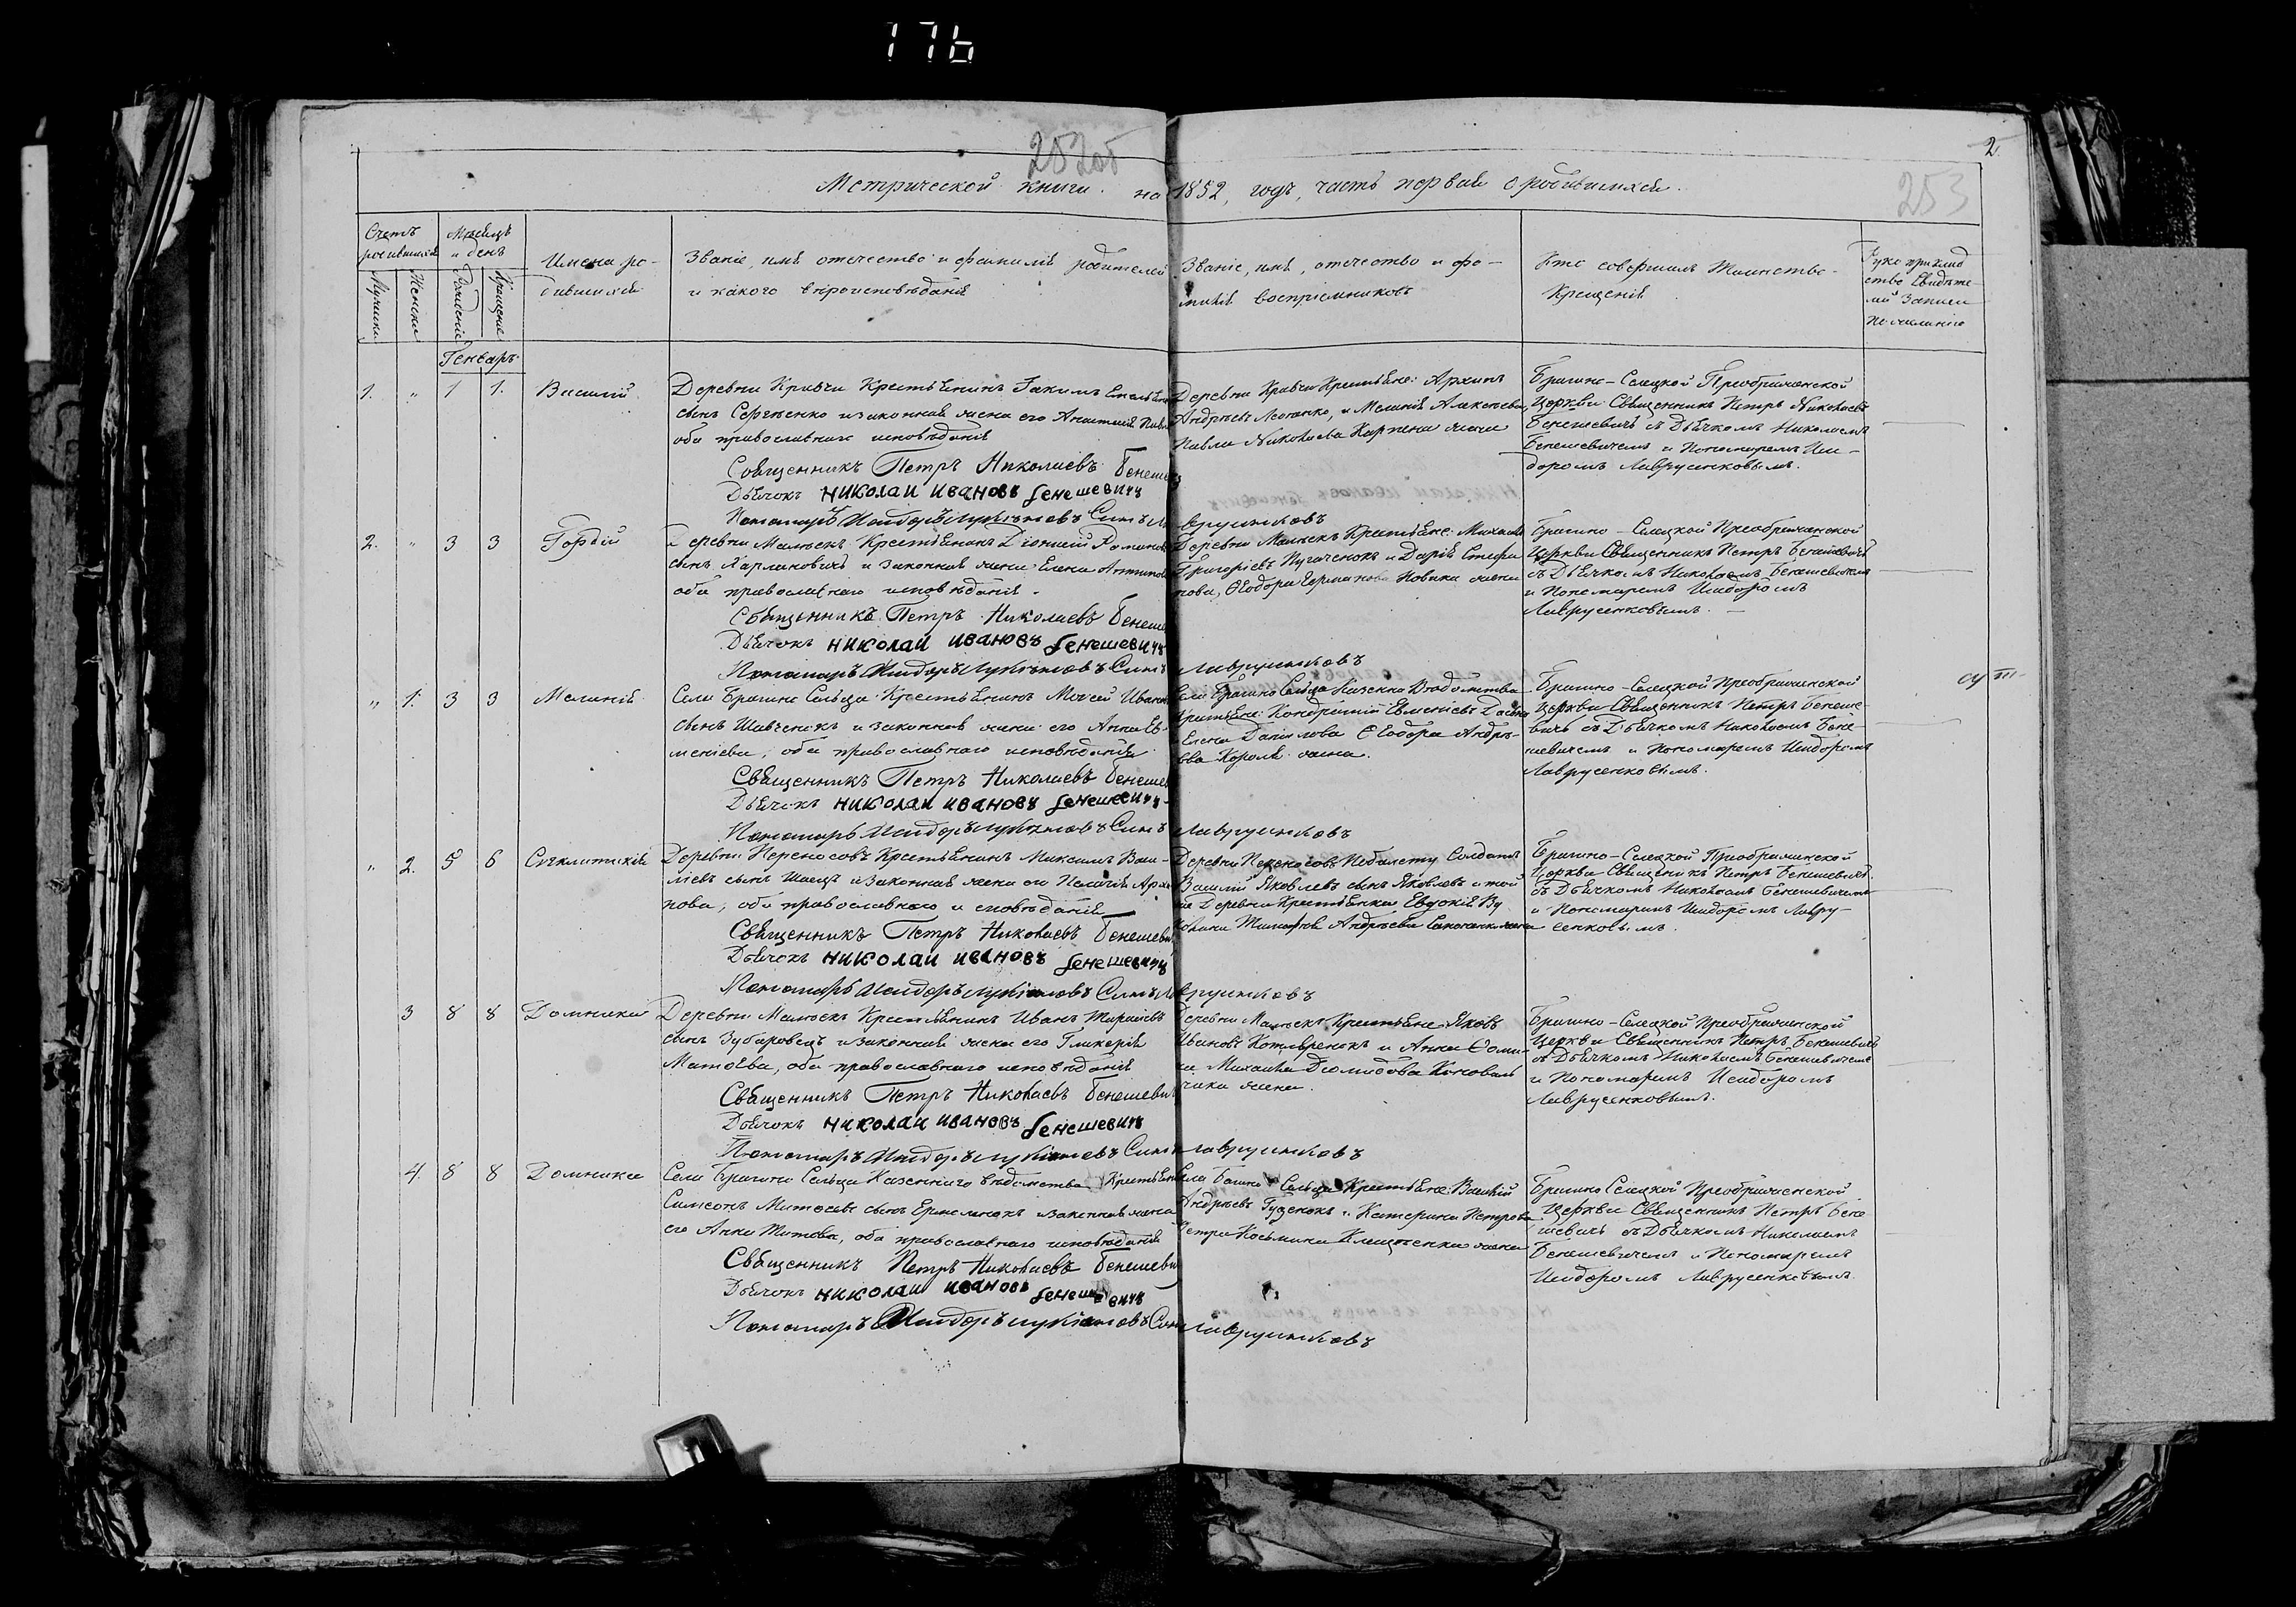 176
252 об
2
253
Метрической книги на 1852, годъ, часть первая о родившихся.
Счетъ родившихся
Мѣсяцъ и день
Имена родившихся
Званіе, имя отечество и фамилія родителей и какого вѣроисповѣданія
Званіе, имя, отечество и фамилія воспріемниковъ
Кто совершалъ Таинство Крещенія
Рукоприкладство свидѣтелей записи по желанію
Мужеска
Женска
Рожденіе
Крещеніе
Генварь
1. " 1 1. Василій
Деревни Кривчи Крестьянинъ Іакимъ
сынъ Сергѣенко и законная жена его Анастасія
оба православнаго исповѣданія
Деревни Кривчи Крестьяне: Архипъ
Андреевъ и Меланія Алексѣева
Павла Николаева жена
Брагино-Селецкой Преображенской
Церкви Священникъ Петръ Николаевъ
Бенешевичъ съ Дьячкомъ Николаемъ
Бенешевичемъ и Пономаремъ Иси-
доромъ Лаврусенковымъ.
Священникъ Петръ Николаевъ Бенеше
Дьячокъ Николаи Ивановъ Бенешевичъ
Пономаръ Исидоръ Лукіяновъ Сынъ Лаврусенковъ
2. " 3 3 Гордій
Деревни Малюекъ Крестьянинъ Діонисій Романовъ
сынъ Харлановичъ и законная жена Елена
оба православнаго исповѣданія.
Деревни Крестьяне: Михаилъ
Григоріевъ Пугаченокъ и Дарія Стефа
нова, Ѳеодора Новика жена
Брагино-Селецкой Преображенской
Церкви Священникъ Петръ Бенешевичъ
съ Дьячкомъ Николаемъ Бенешевичемъ
и Пономаремъ Исидоромъ
Лаврусенковымъ.
Священникъ Петръ Николаевъ Бенеше
Дьячокъ Николаи Ивановъ Бенешевичъ
Пономаръ Исидоръ Лукіяновъ Сынъ Лаврусенковъ
" 1. 3 3 Меланія
Села Брагина Сельца Крестьянинъ Моисей Ивановъ
сынъ Шевченокъ и законная жена его Анна Ев-
меніева, оба православнаго исповѣданія
Села Брагино Сельца Казеннаго Вѣдомства
Крестьяне: Кондратій Евменіевъ
Елена Данилова Ѳеодора Андре-
ева Короля жена.
Брагино-Селецкой Преображенской
Церкви Священникъ Петръ Бенеше
вичъ съ Дьячкомъ Николаемъ Бене-
шевичемъ и Пономаремъ Исидоромъ
Лаврусенковымъ.
Священникъ Петръ Николаевъ Бенешев
Дьячокъ Николаи Ивановъ Бенешевичъ
Пономаръ Исидоръ Лукіяновъ Сынъ Лаврусенковъ
" 2. 5 6 Сигклитикія
Деревни Переносовъ Крестьянинъ Максимъ Васи-
ліевъ сынъ Швецъ и Законная жена его Пелагія
пова, оба православнаго исповѣданія
Деревни Переносовъ Солдатъ
Василій Яковлевъ сынъ Яковлевъ и той
же Деревни Крестьянка Евдокія
Тимофея Андреева жена
Брагино-Селецкой Преображенской
Церкви Священникъ Петръ Бенешевичъ
съ Дьячкомъ Николаемъ Бенешевичемъ
и Пономаремъ Исидоромъ Лавру-
сенковымъ.
Священникъ Петръ Николаевъ Бенешеви
Дьячокъ Николаи Ивановъ Бенешевичъ
Пономаръ Исидоръ Лукіяновъ Сынъ Лаврусенковъ
3 8 8 Домникія
Деревни Малюекъ Крестьянинъ Иванъ Тарасіевъ
сынъ Зубаровецъ и законная жена его Гликерія
Матѳѣева, оба православнаго исповѣданія
Деревни Малюекъ Крестьяне Яковъ
Ивановъ и Анна Ѳоми-
на Михаила Діомидова Коноваль
чика жена.
Брагино-Селецкой Преображенской
Церкви Священникъ Петръ Бенешевичъ
съ Дьячкомъ Николаемъ Бенешевичемъ
и Пономаремъ Исидоромъ
Лаврусенковымъ.
Священникъ Петръ Николаевъ Бенешеви
Дьячокъ Николаи Ивановъ Бенешевичъ
Пономаръ Исидоръ Лукіяновъ Сынъ Лаврусенковъ
4. 8 8 Домникія
Села Брагино Сельца Казеннаго вѣдомства
Симеонъ сынъ и законная жена
его Анна Титова, оба православнаго исповѣданія
Села Сельца Крестьяне: Василій
Андреевъ Гуценокъ и Катерина Петрова
Петра Косьмина жена
Брагино Селецкой Преображенской
Церкви Священникъ Петръ Бене
шевичъ съ Дьячкомъ Николаемъ
Бенешевичемъ и Пономаремъ
Исидоромъ Лаврусенковымъ.
Священникъ Петръ Николаевъ Бенешеви
Дьячокъ Николаи Ивановъ Бенешевичъ
Пономаръ Исидоръ Лукіяновъ Сынъ Лаврусенковъ